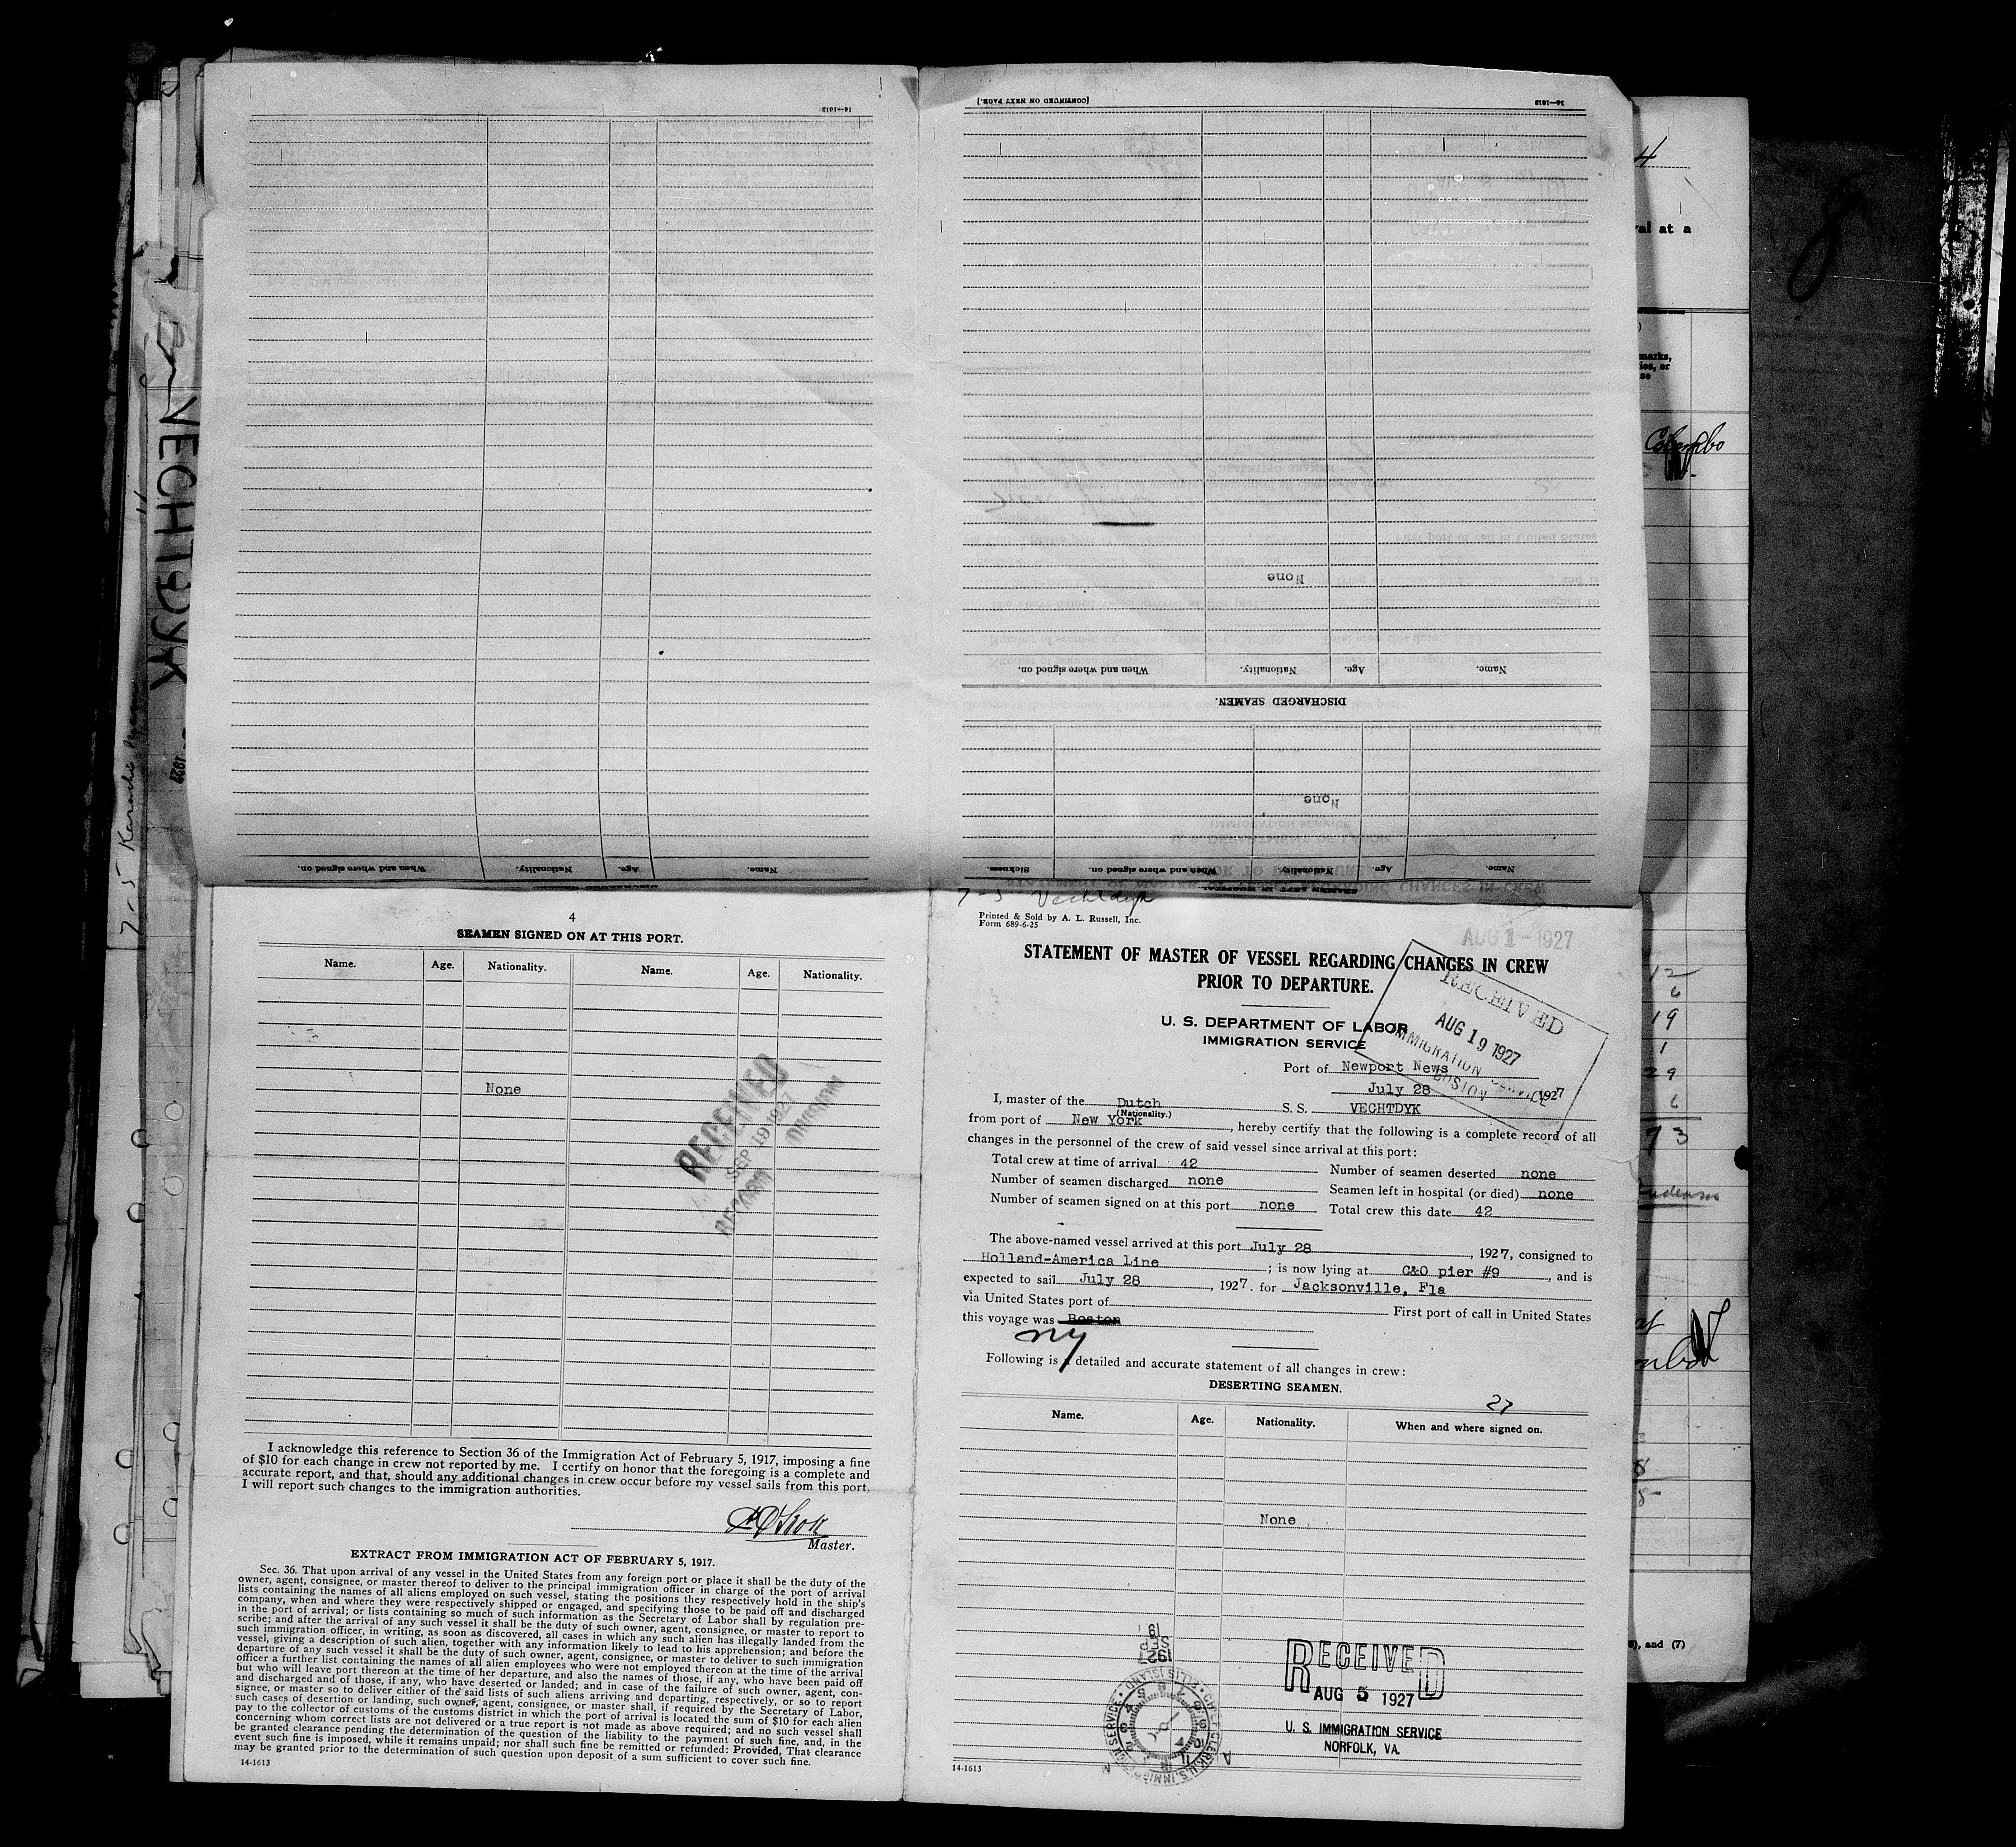 16—1613
[CONTINUED ON NEXT PAGE.]
16—1613
None
Name.
Age.
Nationality.
When and where signed on.
DISCHARGED SEAMEN.
None
Name.
Age.
Nationality.
When and where signed on.
Name.
Age.
Nationality.
When and where signed on.
Sickness.
SEAMEN LEFT IN HOSPITAL
VECHTDYK
1927
7-5 Karachi
4
val at a
marks,
ies, or
se
Colombo
12
6
19
1
29
6
73
8
6), and (7)
4
SEAMEN SIGNED ON AT THIS PORT.
Name. Age. Nationality. Name. Age. Nationality.
None
RECEIVED
SEP 19 1927
RECORD DIVISION
I acknowledge this reference to Section 36 of the Immigration Act of February 5, 1917, imposing a fine
of $10 for each change in crew not reported by me. I certify on honor that the foregoing is a complete and
accurate report, and that, should any additional changes in crew occur before my vessel sails from this port,
I will report such changes to the immigration authorities.
Master.
EXTRACT FROM IMMIGRATION ACT OF FEBRUARY 5, 1917.
Sec. 36. That upon arrival of any vessel in the United States from any foreign port or place it shall be the duty of the
owner, agent, consignee, or master thereof to deliver to the principal immigration officer in charge of the port of arrival
lists containing the names of all aliens employed on such vessel, stating the positions they respectively hold in the ship's
company, when and where they were respectively shipped or engaged, and specifying those to be paid off and discharged
in the port of arrival; or lists containing so much of such information as the Secretary of Labor shall by regulation pre-
scribe; and after the arrival of any such vessel it shall be the duty of such owner, agent, consignee, or master to report to
such immigration officer, in writing, as soon as discovered, all cases in which any such alien has illegally landed from the
vessel, giving a description of such alien, together with any information likely to lead to his apprehension; and before the
departure of any such vessel it shall be the duty of such owner, agent, consignee, or master to deliver to such immigration
officer a further list containing the names of all alien employees who were not employed thereon at the time of the arrival
but who will leave port thereon at the time of her departure, and also the names of those, if any, who have been paid off
and discharged and of those, if any, who have deserted or landed; and in case of the failure of such owner, agent, con-
signee, or master so to deliver either of the said lists of such aliens arriving and departing, respectively, or so to report
such cases of desertion or landing, such owner, agent, consignee, or master shall, if required by the Secretary of Labor,
pay to the collector of customs of the customs district in which the port of arrival is located the sum of $10 for each alien
concerning whom correct lists are not delivered or a true report is not made as above required; and no such vessel shall
be granted clearance pending the determination of the question of the liability to the payment of such fine, and, in the
event such fine is imposed, while it remains unpaid; nor shall such fine be remitted or refunded: Provided, That clearance
may be granted prior to the determination of such question upon deposit of a sum sufficient to cover such fine.
14-1613
7-5 Vechtdyk
Printed & Sold by A. L. Russell, Inc.
Form 689-6-25
AUG 1 - 1927
STATEMENT OF MASTER OF VESSEL REGARDING CHANGES IN CREW
PRIOR TO DEPARTURE.
RECEIVED
AUG 19 1927
IMMIGRATION SERVICE
BOSTON
U. S. DEPARTMENT OF LABOR
IMMIGRATION SERVICE
Port of Newport News
July 28 1927
I, master of the Dutch S. S. VECHTDYK
(Nationality.)
from port of New York, hereby certify that the following is a complete record of all
changes in the personnel of the crew of said vessel since arrival at this port:
Total crew at time of arrival 42 Number of seamen deserted none
Number of seamen discharged none Seamen left in hospital (or died) none
Number of seamen signed on at this port none Total crew this date 42
The above-named vessel arrived at this port July 28, 1927, consigned to
Holland-America Line; is now lying at C&O pier #9, and is
expected to sail July 28, 1927. for Jacksonville, Fla
via United States port of First port of call in United States
this voyage was Boston
ny
Following is a detailed and accurate statement of all changes in crew:
DESERTING SEAMEN.
27
Name. Age. Nationality. When and where signed on.
None
1927
SEP
19
CHIEF CLERK U.S. IMMIGRATION SERVICE · ELLIS ISLAND
RECEIVED
AUG 5 1927
U. S. IMMIGRATION SERVICE
NORFOLK, VA.
14-1613